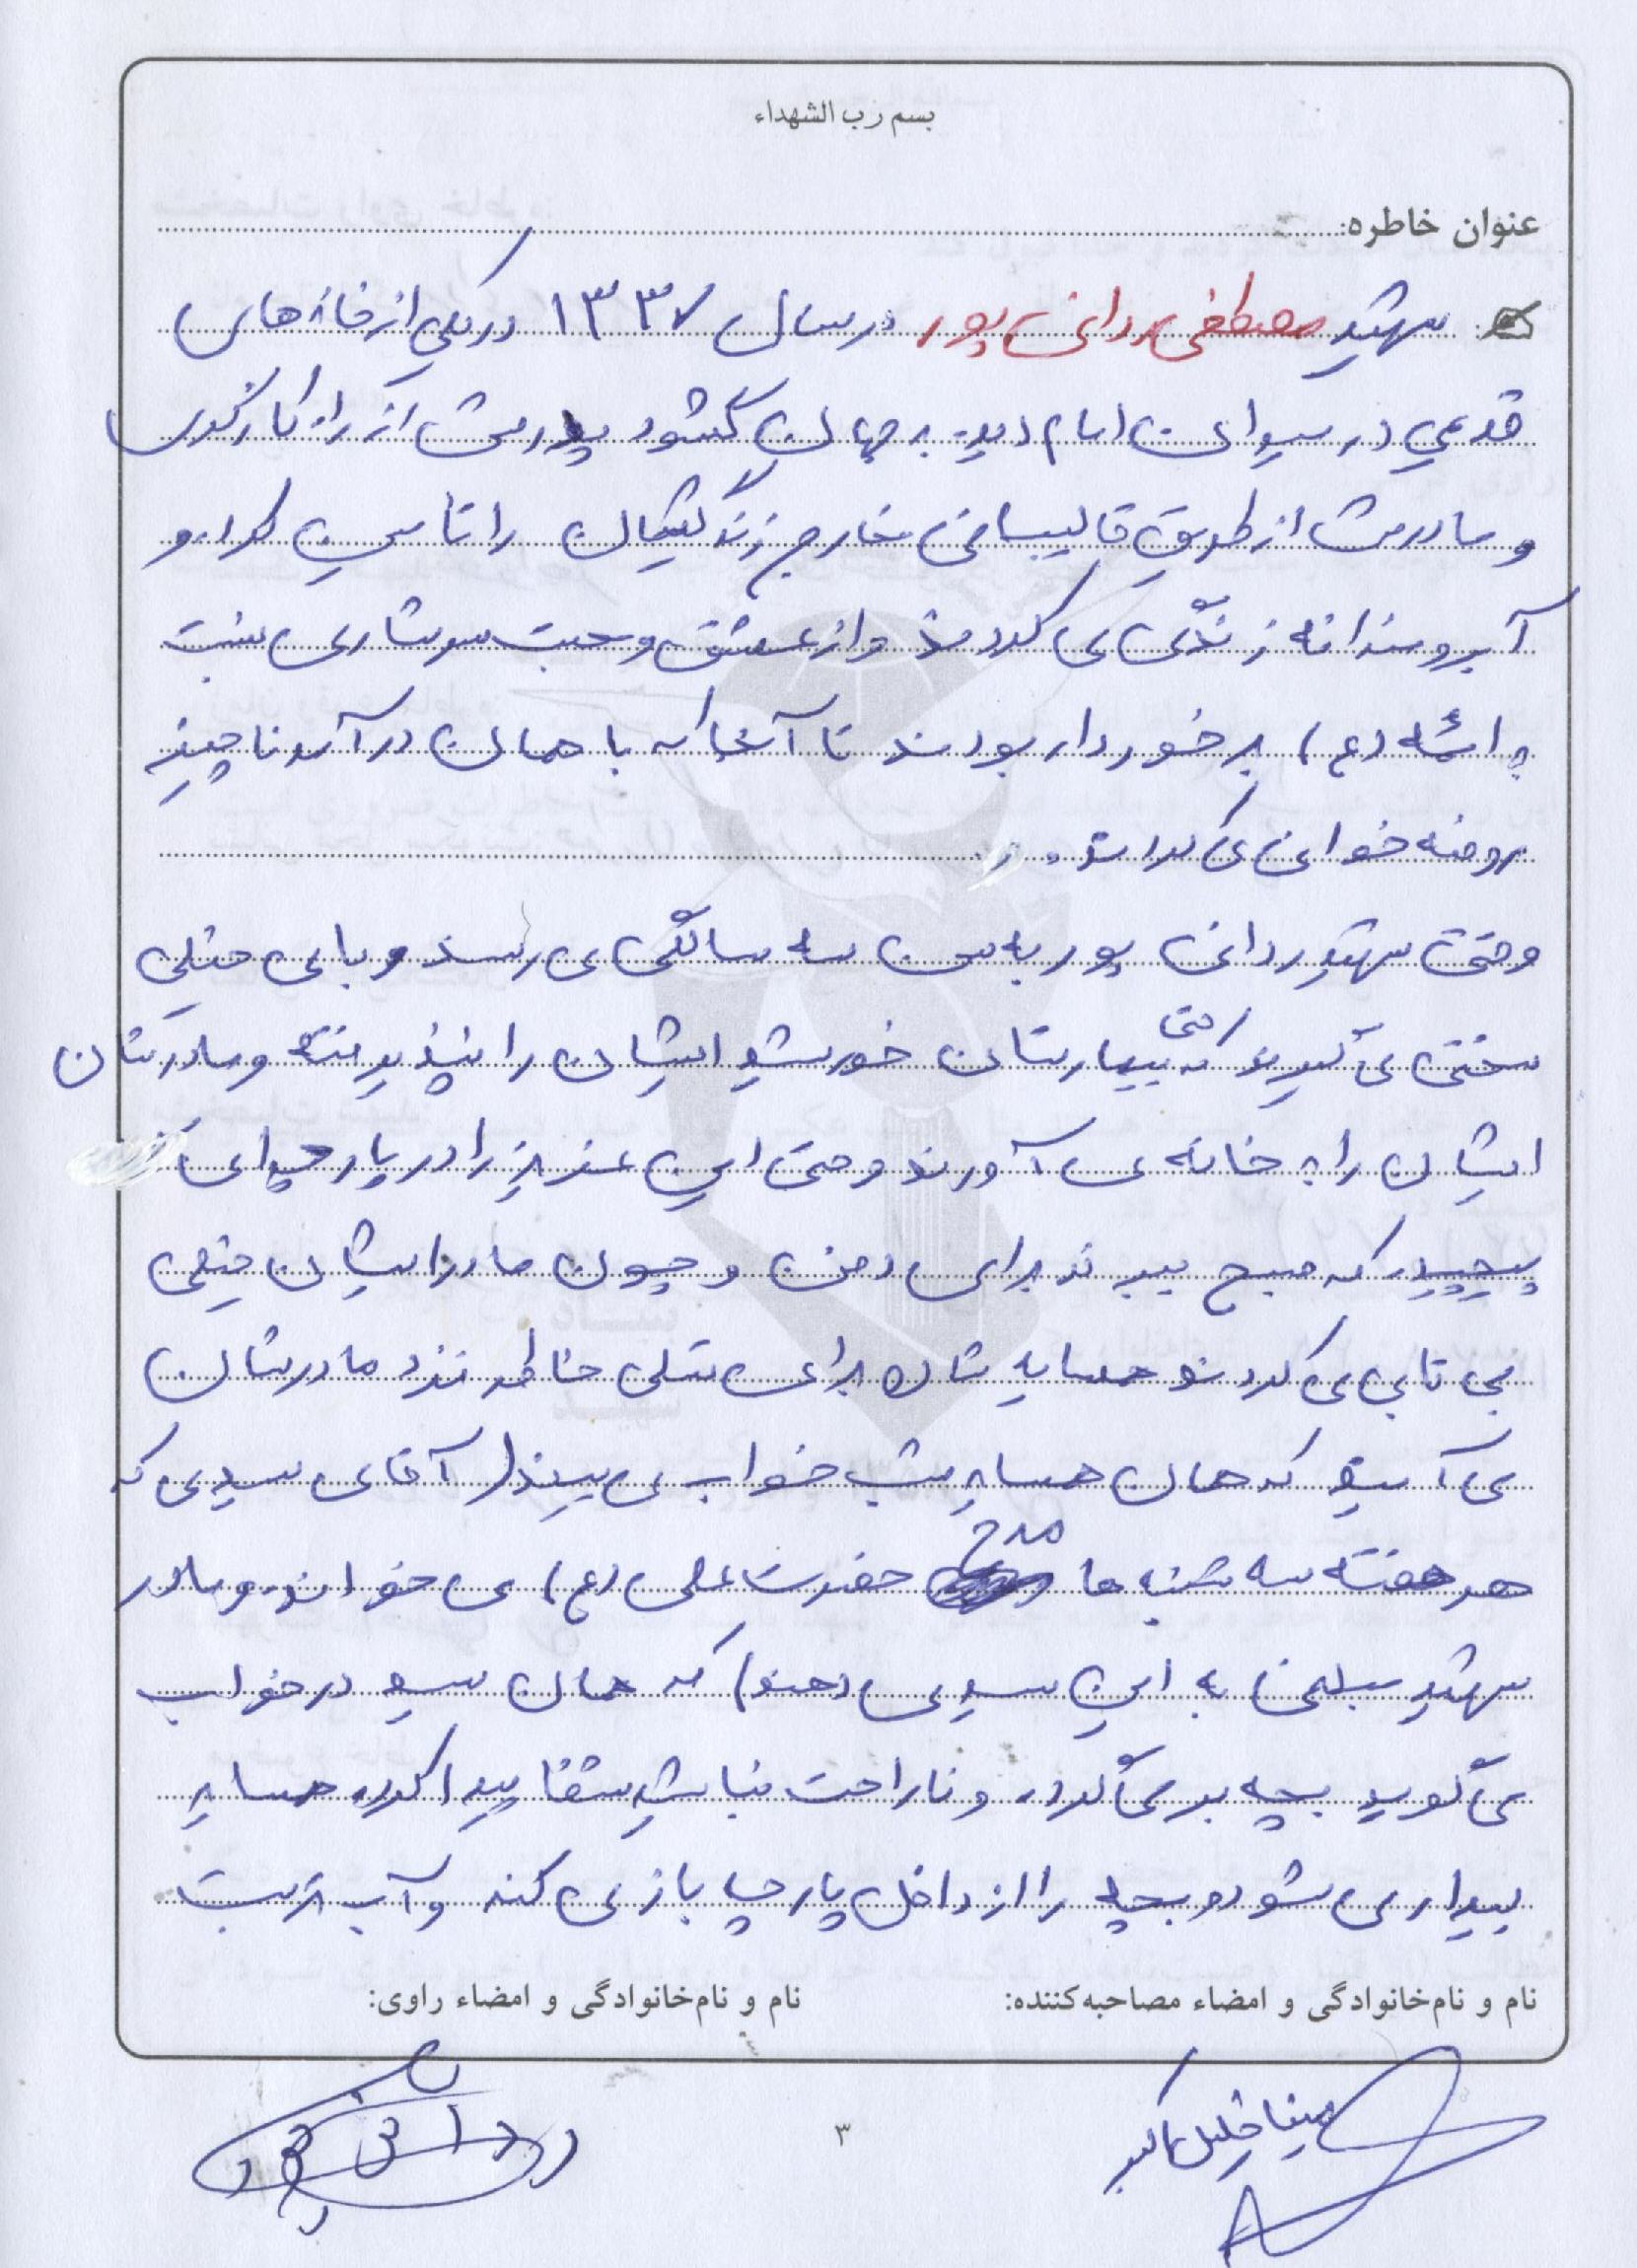 بسم رب الشهداء
عنوان خاطره:
شهید مصطفی ردانی پور در سال ۱۳۳۷ در یکی از خانه های
قدیمی در سید ا امام دیده به جهان گشود پدرش از راه کارگری
و مادرش از طریق قالیبافی مخارج زندگیشان را تامین کرده و
آبرومندانه زندگی می کردند و از عشق و محبت سرشاری نسبت
به ائمه (ع) برخوردار بودند تا آنجا که با همان درآمد ناچیز
روضه خوانی می کردند.
وقتی شهید ردانی پور به سن سه سالگی می رسد وبای خیلی
سختی می گیرد که حتی بیمارستان خورشید ایشان را نپذیرفته و مادرشان
ایشان را به خانه می آورند و حتی این عزیز را در پارچه ای
پیچیده که صبح ببرند برای دفن و چون مادر ایشان خیلی
بی تابی می کردند همسایه شان برای تسلی خاطر نزد مادرشان
می آید که همان همسایه شب خواب می بیند (آقای سیدی که
هر هفته سه شنبه ها مدح حضرت علی (ع) می خوانده و مادر
شهید مبلغی به این سید می دهند) که همان سید در خواب
می گوید بچه بر می گردد و ناراحت نباشید شفا پیدا کرده همسایه
بیدار می شود و بچه را از داخل پارچه باز می کند و آب تربت
نام و نام خانوادگی و امضاء مصاحبه کننده:
نام و نام خانوادگی و امضاء راوی:
ردانی پور
۳